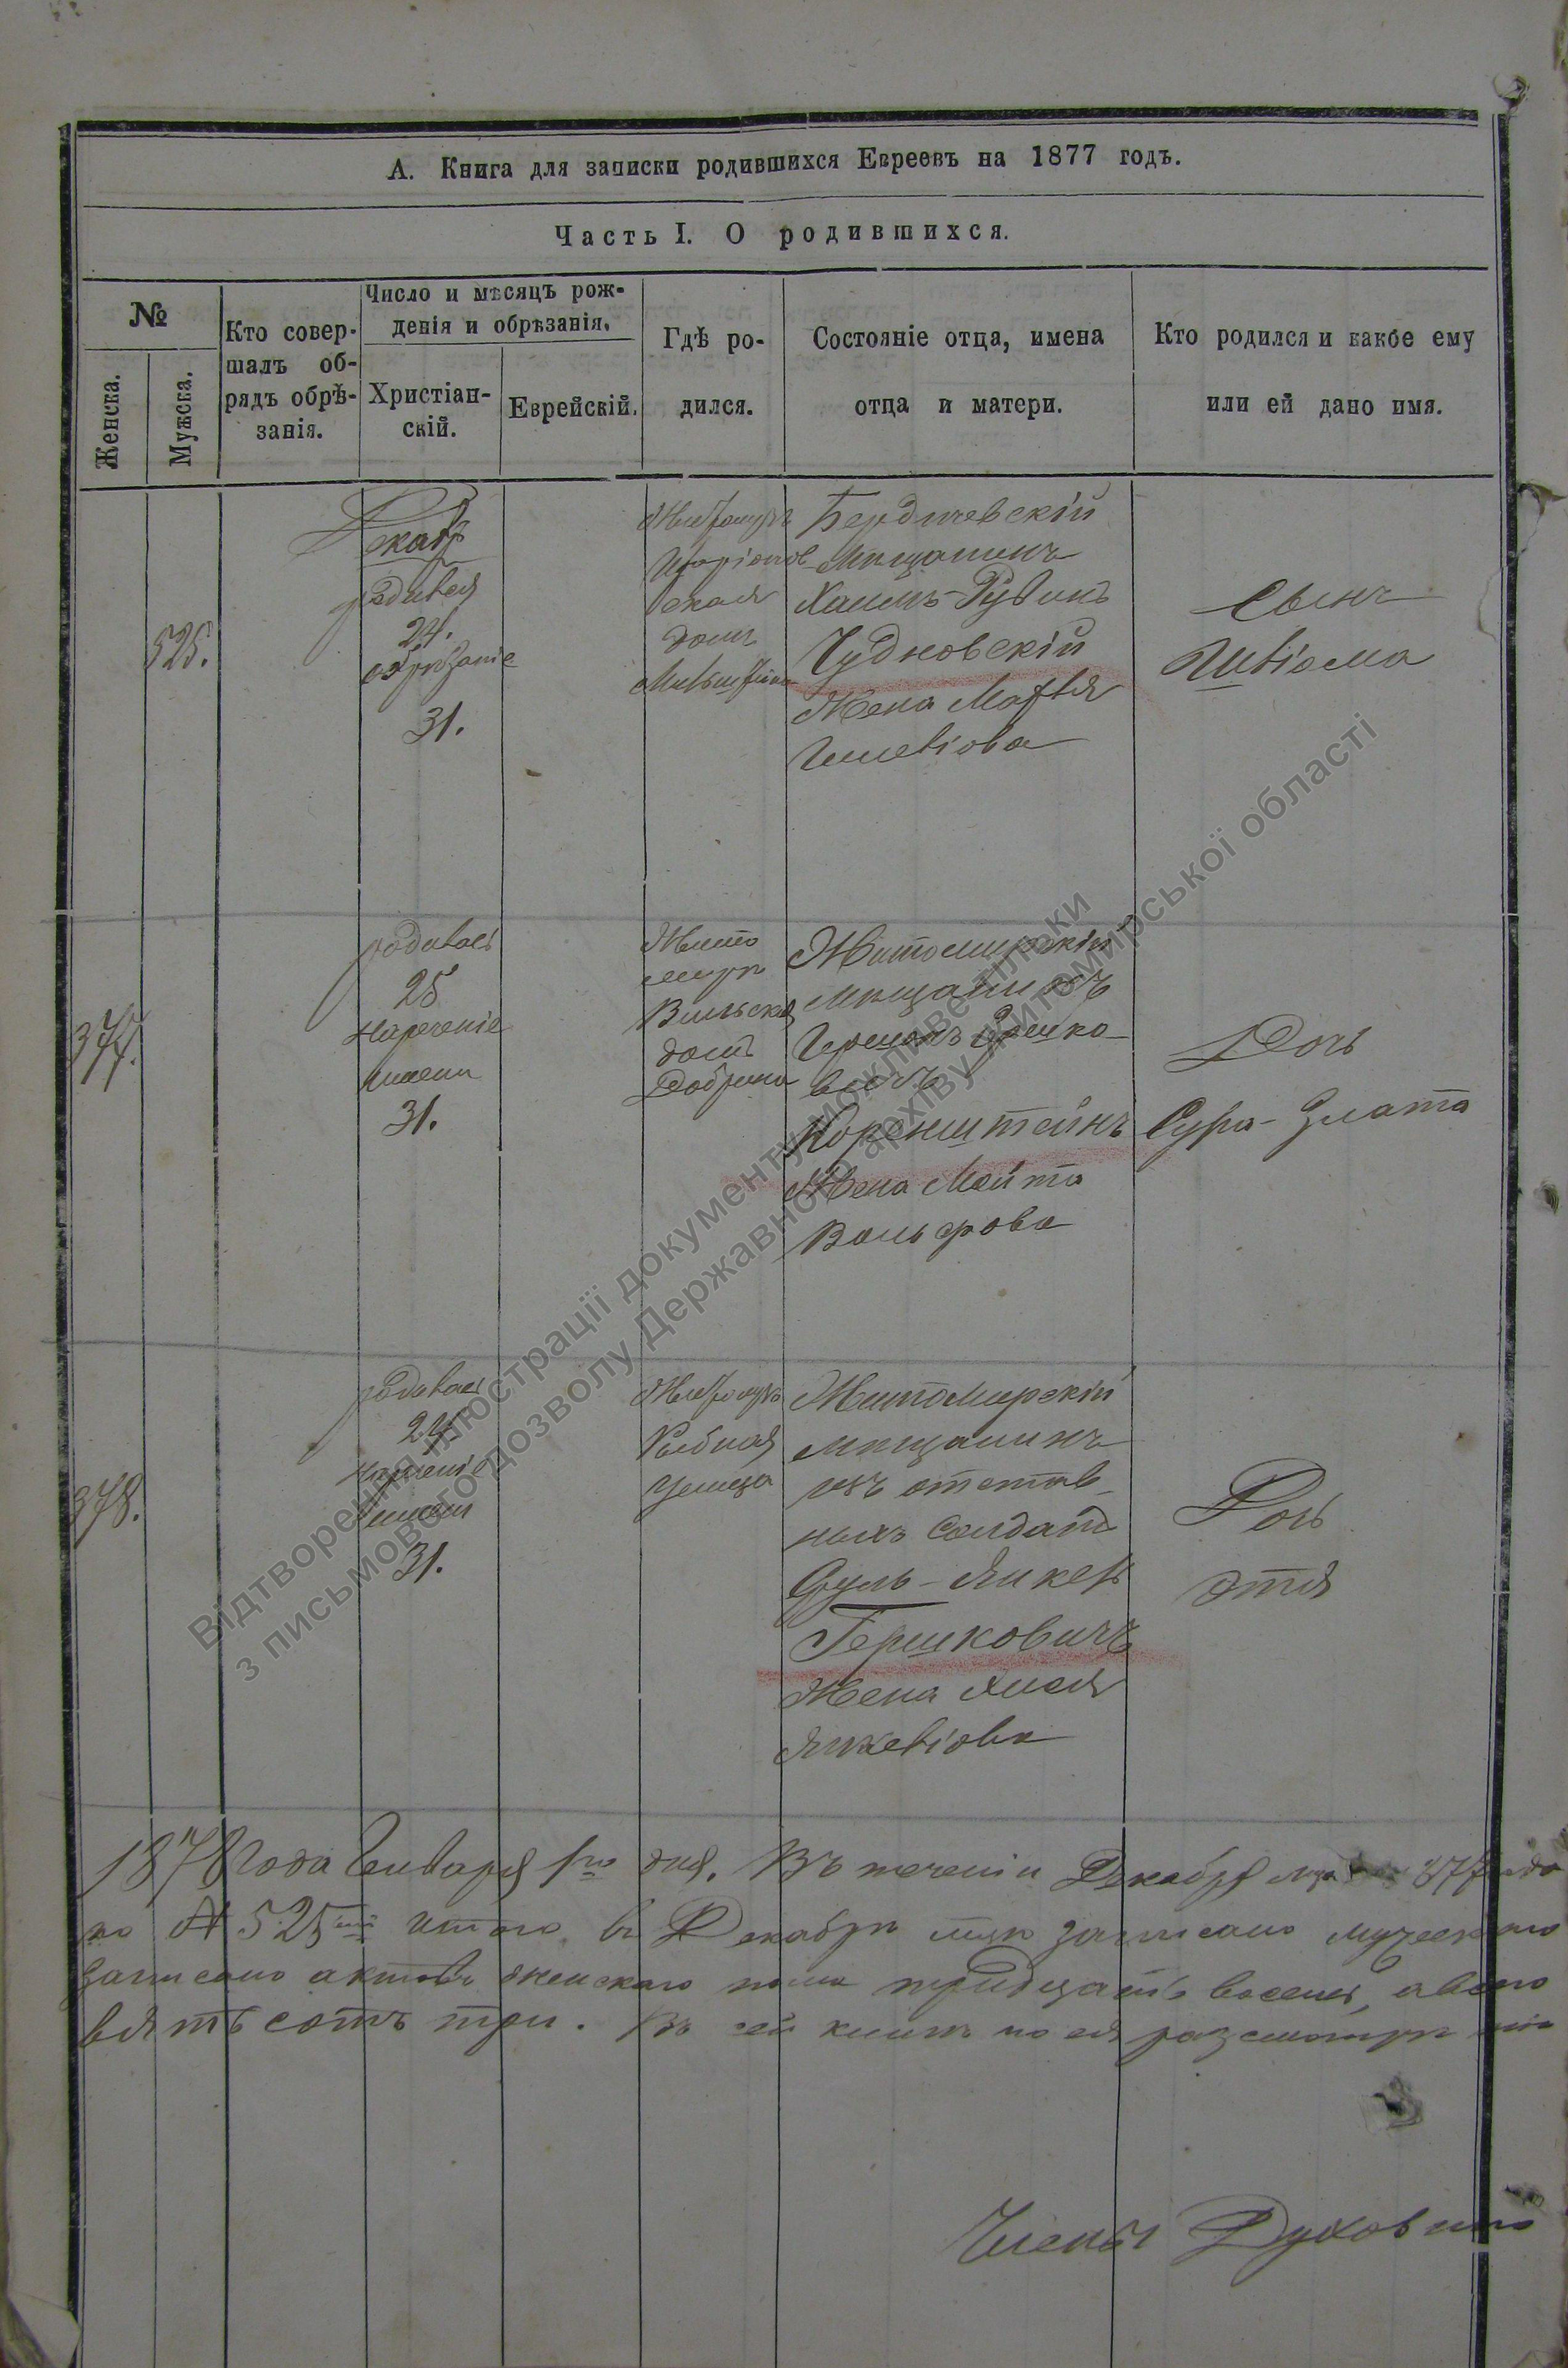 А. Книга для записки родившихся Евреевъ на 1877 годъ.
Часть I. О родившихся.
№
Женска.
Мужска.
Кто совер-
шалъ об-
рядъ обрѣ-
занія.
Число и мѣсяцъ рож-
денія и обрѣзанія.
Христіан-
скій.
Еврейскій.
Гдѣ ро-
дился.
Состояніе отца, имена
отца и матери.
Кто родился и какое ему
или ей дано имя.
525.
Декабр
родился
24.
обрѣзаніе
31.
Житомиръ
ская
домъ
Бердичевскій
Мѣщанинъ
Хаимъ-Рувинъ
Чудновскій
Жена
Сынъ
377.
родилась
25
нареченіе
имени
31.
Жито
миръ
Вильская
домъ
Добрина
Житомирскій
Мѣщанинъ
Гершонъ Ершко-
вичъ
Коренштейнъ
Жена Мейта
Вольфова
Дочь
Сура-Злата
378.
родилась
24.
нареченіе
имени
31.
Житомиръ
Рыбная
улица
Житомирскій
мѣщанинъ
изъ отстав-
ныхъ Солдатъ
Сруль-Янкель
Гершковичъ
Жена
Янкеліова
Дочь
Этля
1878 года Января 1го дня. Въ теченіи Декабря мца 1877 года
по № 525 итого въ Декабрѣ мцѣ записано мужескаго
записано актовъ женскаго пола тридцать восемь, а всего
вятьсотъ три. Въ сей книгѣ по ея разсмотрѣніи
Члены Духовнаго
Відтворення ілюстрації документу можливе тільки
з письмового дозволу Державного архіву Житомирської області